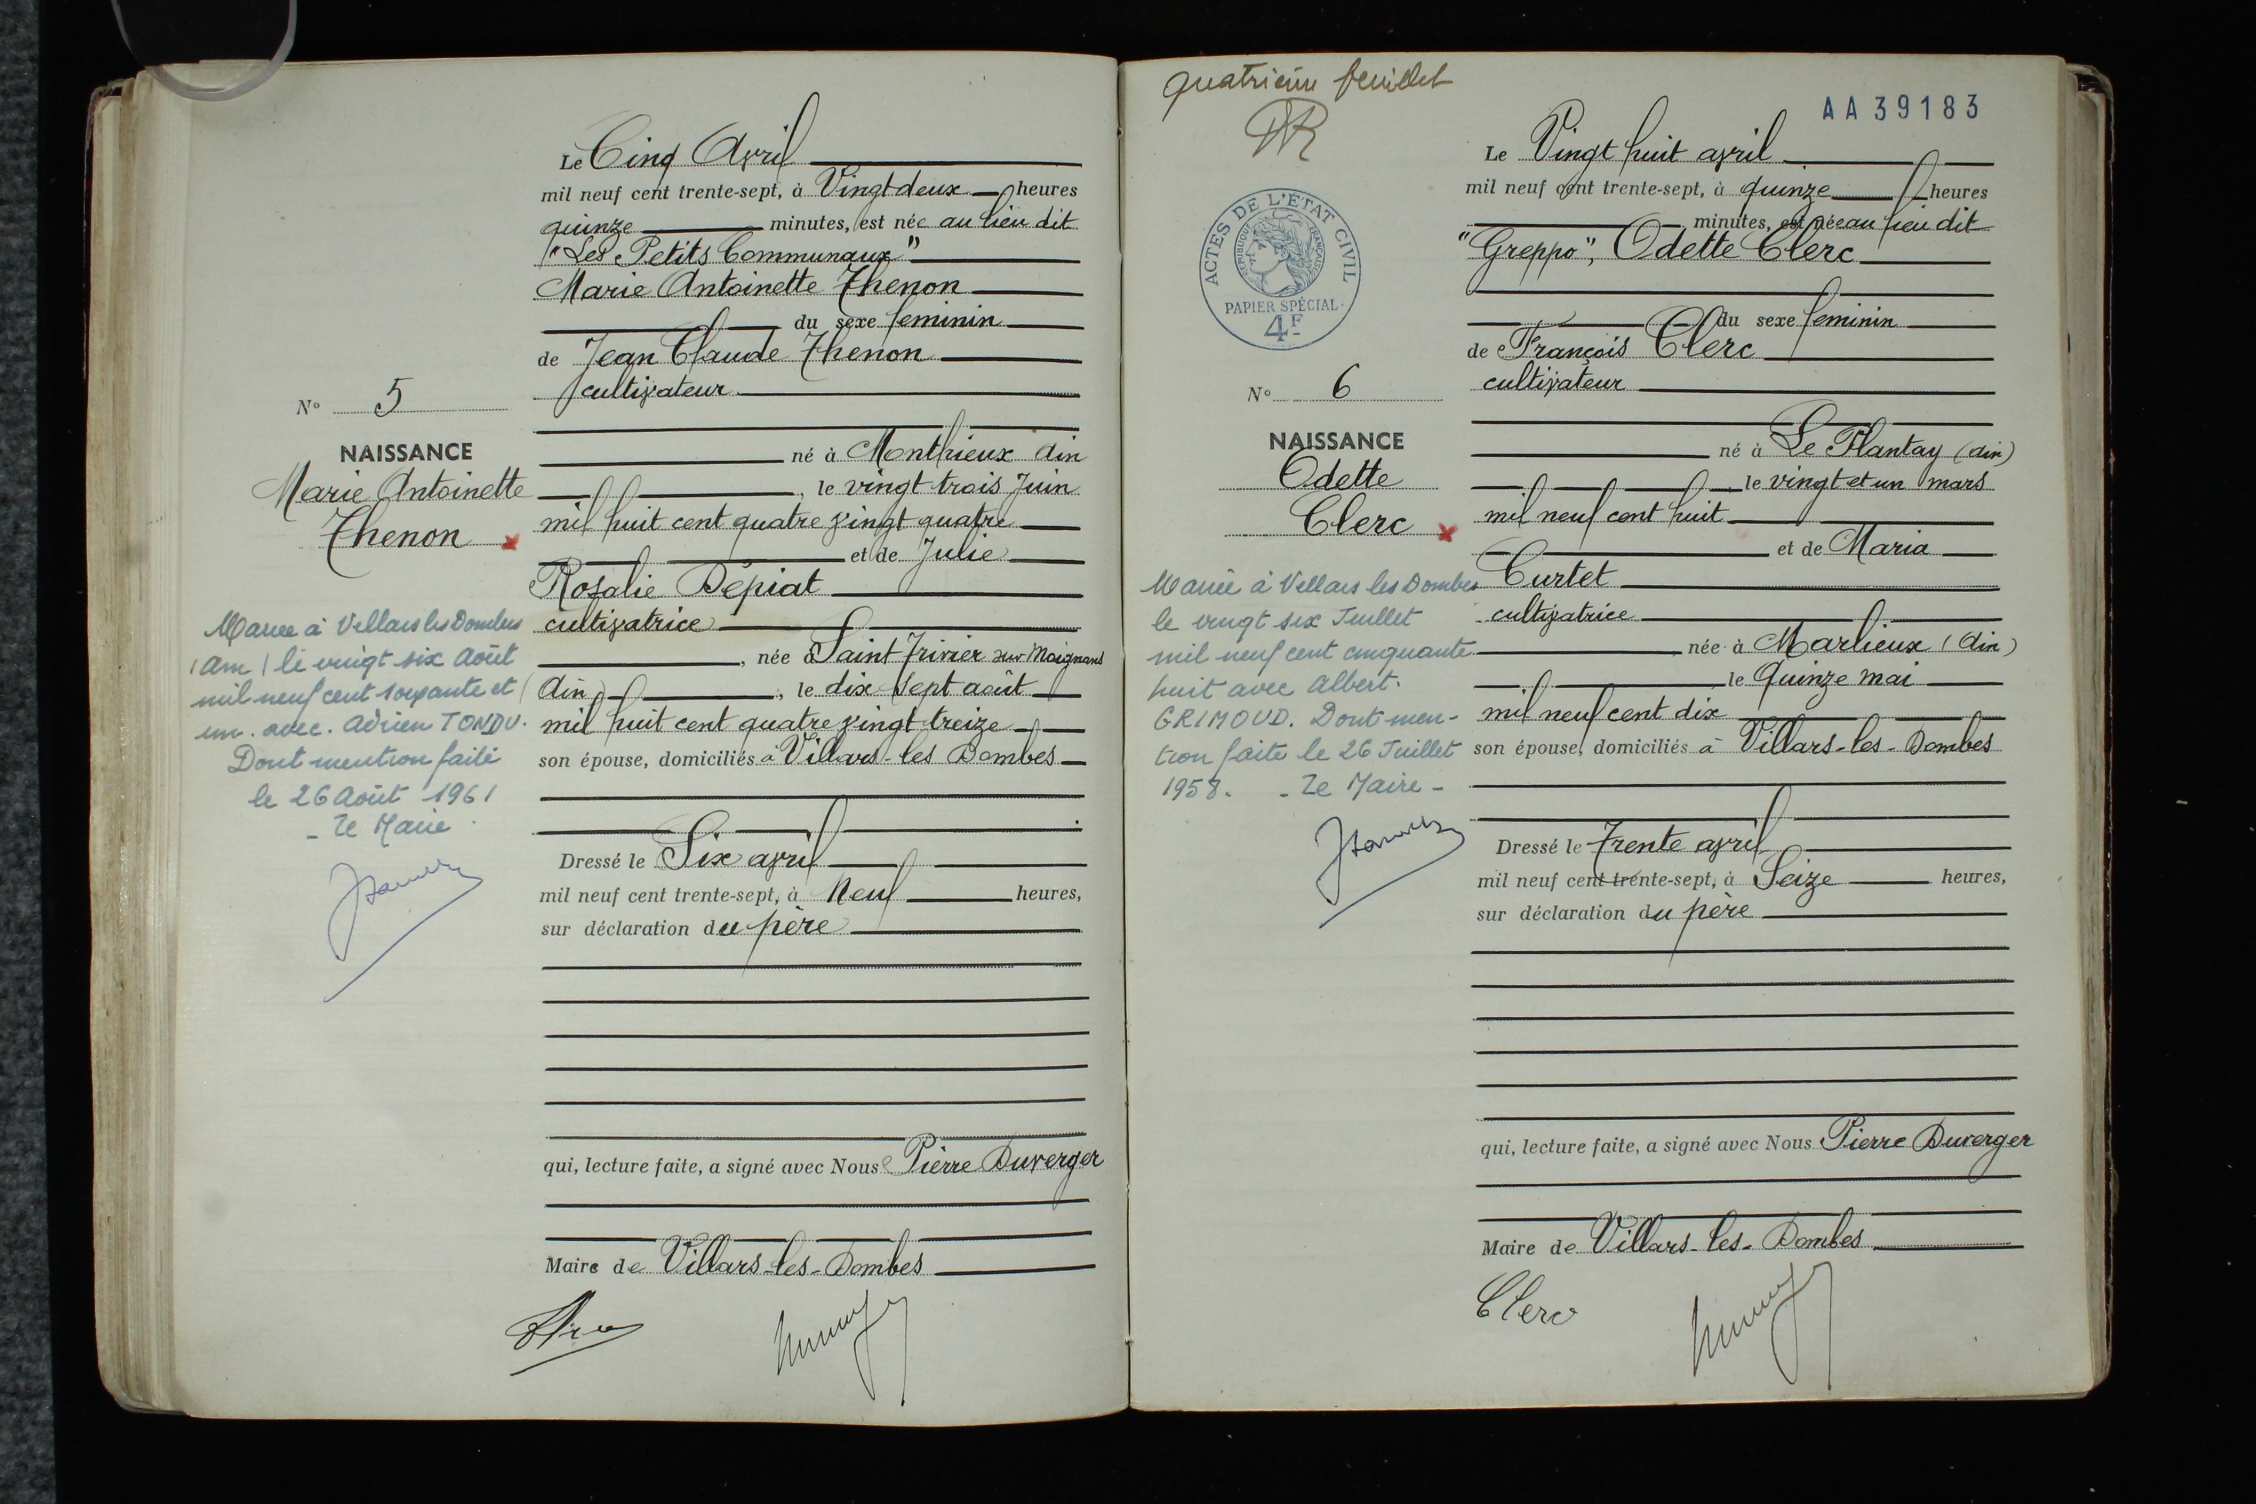 Le Cinq Avril
mil neuf cent trente-sept, à Vingt deux heures
quinze minutes, est née au lieu dit
"Les Petits Communaux"
Marie Antoinette Thenon
du sexe feminin
de Jean Claude Thenon
cultivateur
N° 5
né à Monthieux Ain
NAISSANCE
Marie Antoinette
Thenon
, le vingt trois Juin
mil huit cent quatre vingt quatre
et de Julie
Rosalie Dépiat
cultivatrice
, née à Saint Trivier sur Moignans
(Ain), le dix sept août
mil huit cent quatre vingt treize
son épouse, domiciliés à Villars-les Dombes
Mariée à Villars les Dombes
(Ain) le vingt-six Août
mil neuf cent soixante et
un. avec. Adrien TONDU.
Dont mention faite
le 26 Août 1961
- Le Maire
Dressé le Six avril
mil neuf cent trente-sept, à Neuf heures,
sur déclaration du père
qui, lecture faite, a signé avec Nous Pierre Duverger
Maire de Villars-les-Dombes
quatrième feuillet
AA39183
ACTES DE L'ETAT CIVIL
REPUBLIQUE FRANÇAISE
PAPIER SPÉCIAL
4F
Le Vingt huit avril
mil neuf cent trente-sept, à quinze heures
minutes, est née au lieu dit
"Greppo", Odette Clerc
du sexe feminin
de François Clerc
cultivateur
N° 6
né à Le Plantay (Ain)
NAISSANCE
Odette
Clerc
le vingt et un mars
mil neuf cent huit
et de Maria
Curtet
cultivatrice
née à Marlieux (Ain)
le Quinze mai
mil neuf cent dix
son épouse, domiciliés à Villars-les-Dombes
Mariée à Villars les Dombes
le vingt six Juillet
mil neuf cent cinquante
huit avec Albert.
GRIMOUD. Dont men-
tion faite le 26 Juillet
1958. - Le Maire -
Dressé le Trente avril
mil neuf cent trente-sept, à Seize heures,
sur déclaration du père
qui, lecture faite, a signé avec Nous Pierre Duverger
Maire de Villars-les-Dombes
Clerc